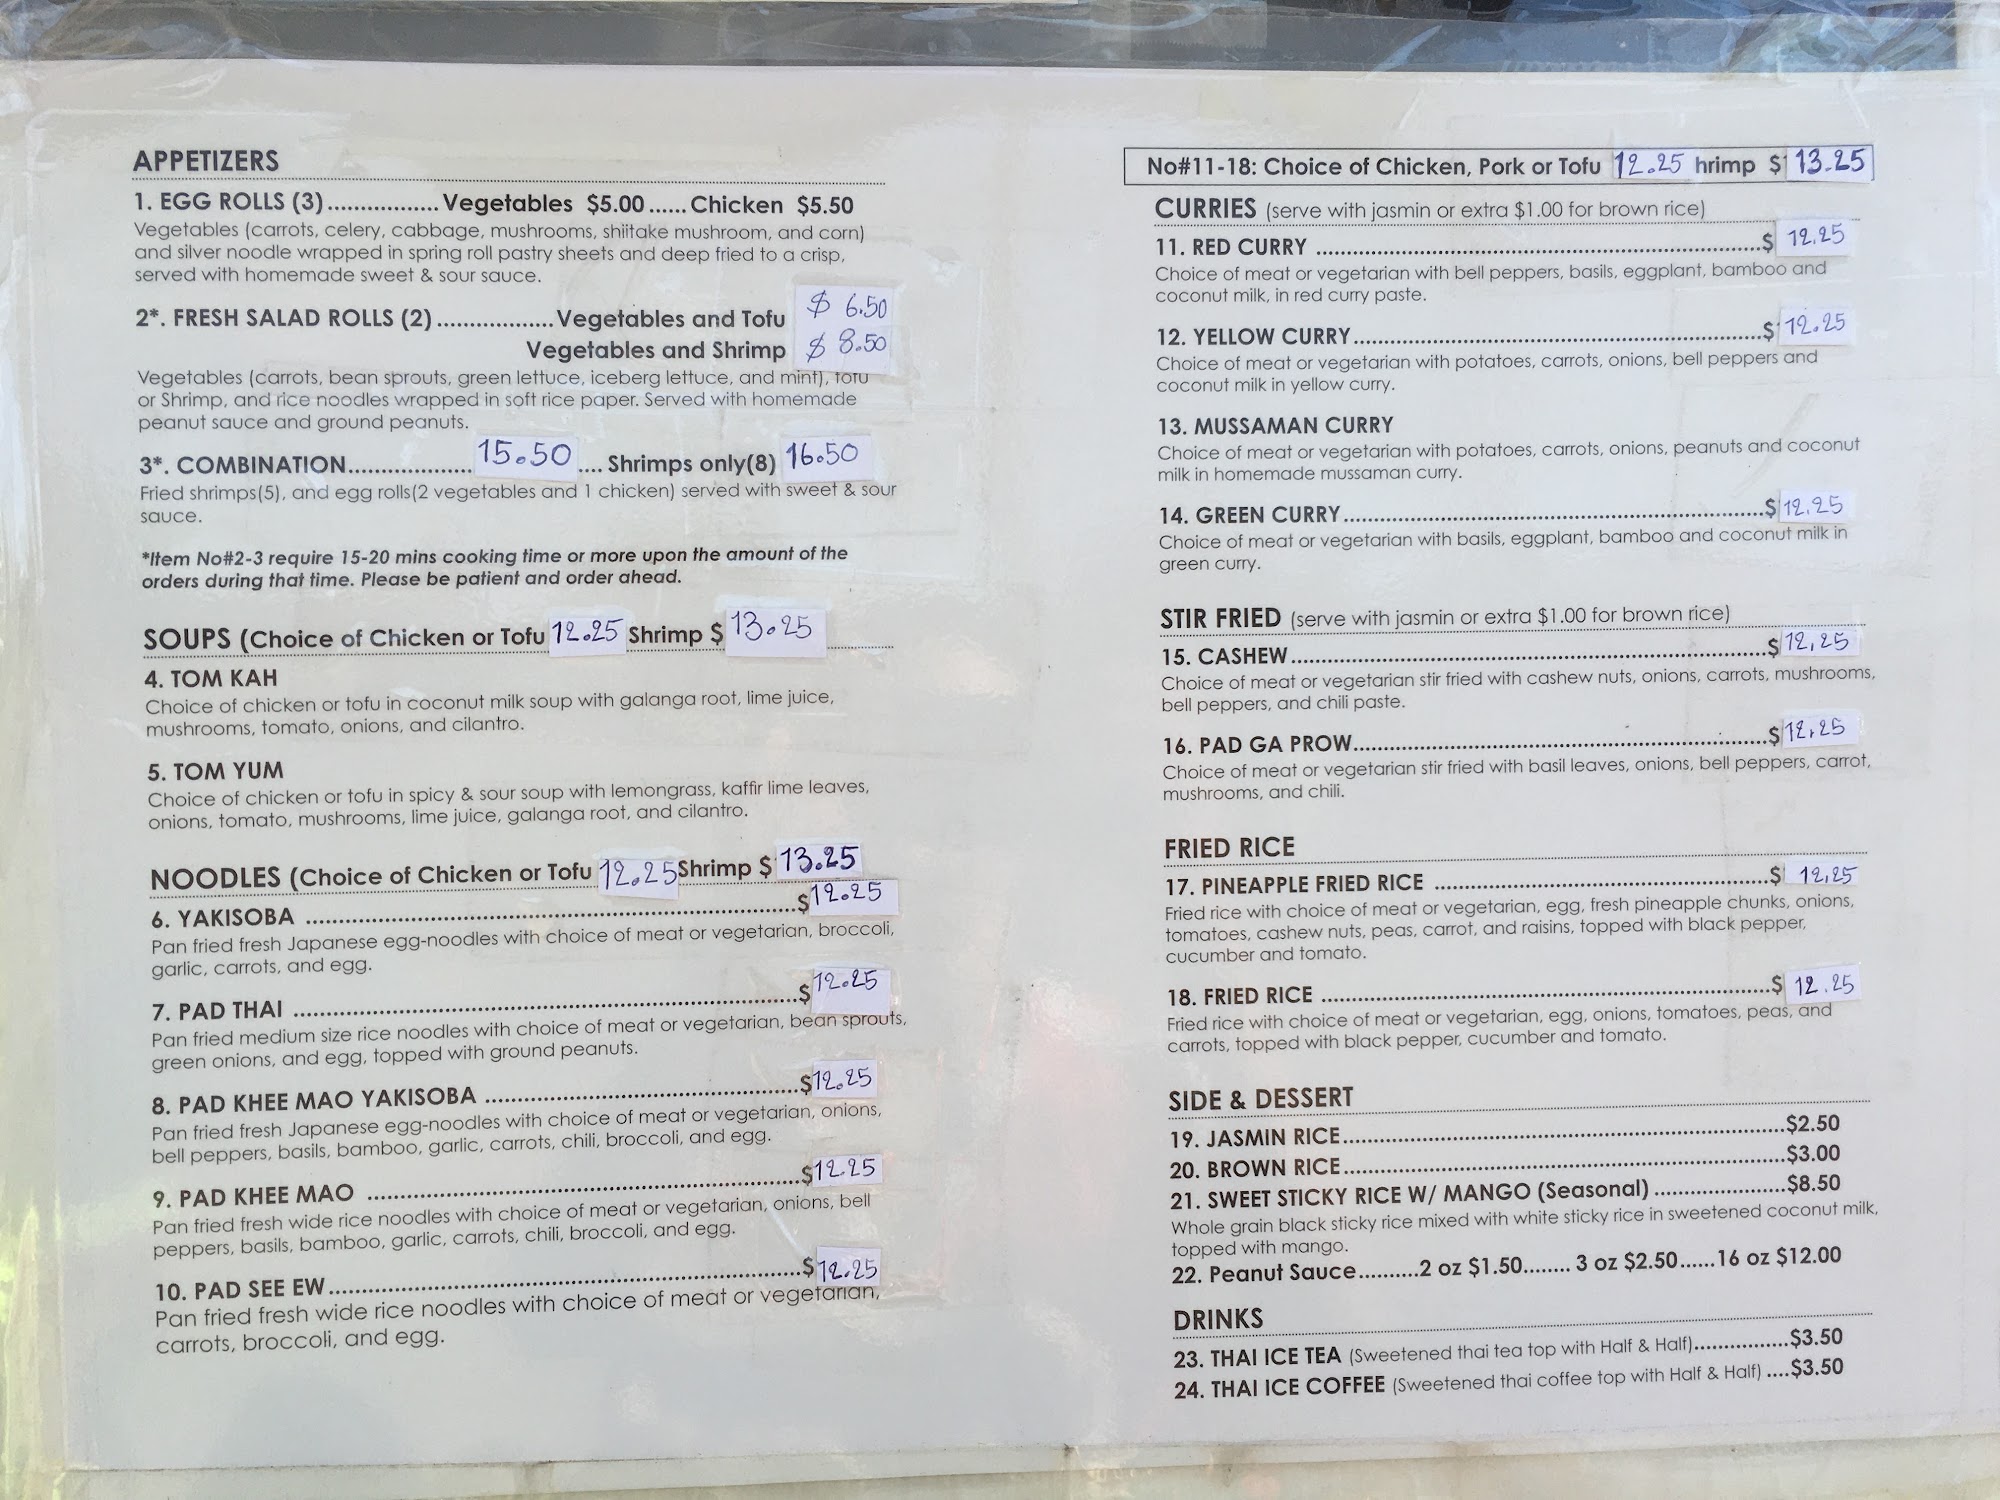 APPETIZERS
1. EGG ROLLS (3)................. Vegetables $5.00 ...... Chicken $5.50
Vegetables (carrots, celery, cabbage, mushrooms, shiitake mushroom, and corn)
and silver noodle wrapped in spring roll pastry sheets and deep fried to a crisp,
served with homemade sweet & sour sauce.
2*. FRESH SALAD ROLLS (2) ..................Vegetables and Tofu $ 6.50
Vegetables and Shrimp $ 8.50
Vegetables (carrots, bean sprouts, green lettuce, iceberg lettuce, and mint), tofu
or Shrimp, and rice noodles wrapped in soft rice paper. Served with homemade
peanut sauce and ground peanuts.
3*. COMBINATION................... 15.50 .... Shrimps only(8) 16.50
Fried shrimps(5), and egg rolls(2 vegetables and 1 chicken) served with sweet & sour
sauce.
*Item No#2-3 require 15-20 mins cooking time or more upon the amount of the
orders during that time. Please be patient and order ahead.
SOUPS (Choice of Chicken or Tofu 12.25 Shrimp $ 13.25
4. TOM KAH
Choice of chicken or tofu in coconut milk soup with galanga root, lime juice,
mushrooms, tomato, onions, and cilantro.
5. TOM YUM
Choice of chicken or tofu in spicy & sour soup with lemongrass, kaffir lime leaves,
onions, tomato, mushrooms, lime juice, galanga root, and cilantro.
NOODLES (Choice of Chicken or Tofu 12.25 Shrimp $ 13.25
6. YAKISOBA ..........$12.25
Pan fried fresh Japanese egg-noodles with choice of meat or vegetarian, broccoli,
garlic, carrots, and egg.
7. PAD THAI ..........$12.25
Pan fried medium size rice noodles with choice of meat or vegetarian, bean sprouts,
green onions, and egg, topped with ground peanuts.
8. PAD KHEE MAO YAKISOBA ..........$12.25
Pan fried fresh Japanese egg-noodles with choice of meat or vegetarian, onions,
bell peppers, basils, bamboo, garlic, carrots, chili, broccoli, and egg.
9. PAD KHEE MAO ..........$12.25
Pan fried fresh wide rice noodles with choice of meat or vegetarian, onions, bell
peppers, basils, bamboo, garlic, carrots, chili, broccoli, and egg.
10. PAD SEE EW..........$12.25
Pan fried fresh wide rice noodles with choice of meat or vegetarian,
carrots, broccoli, and egg.
No#11-18: Choice of Chicken, Pork or Tofu 12.25 hrimp $ 13.25
CURRIES (serve with jasmin or extra $1.00 for brown rice)
11. RED CURRY ..........$ 12.25
Choice of meat or vegetarian with bell peppers, basils, eggplant, bamboo and
coconut milk, in red curry paste.
12. YELLOW CURRY..........$ 12.25
Choice of meat or vegetarian with potatoes, carrots, onions, bell peppers and
coconut milk in yellow curry.
13. MUSSAMAN CURRY
Choice of meat or vegetarian with potatoes, carrots, onions, peanuts and coconut
milk in homemade mussaman curry.
14. GREEN CURRY..........$ 12.25
Choice of meat or vegetarian with basils, eggplant, bamboo and coconut milk in
green curry.
STIR FRIED (serve with jasmin or extra $1.00 for brown rice)
15. CASHEW..........$ 12,25
Choice of meat or vegetarian stir fried with cashew nuts, onions, carrots, mushrooms,
bell peppers, and chili paste.
16. PAD GA PROW..........$ 12,25
Choice of meat or vegetarian stir fried with basil leaves, onions, bell peppers, carrot,
mushrooms, and chili.
FRIED RICE
17. PINEAPPLE FRIED RICE ..........$ 12,25
Fried rice with choice of meat or vegetarian, egg, fresh pineapple chunks, onions,
tomatoes, cashew nuts, peas, carrot, and raisins, topped with black pepper,
cucumber and tomato.
18. FRIED RICE ..........$ 12.25
Fried rice with choice of meat or vegetarian, egg, onions, tomatoes, peas, and
carrots, topped with black pepper, cucumber and tomato.
SIDE & DESSERT
19. JASMIN RICE..........$2.50
20. BROWN RICE..........$3.00
21. SWEET STICKY RICE W/ MANGO (Seasonal) ..........$8.50
Whole grain black sticky rice mixed with white sticky rice in sweetened coconut milk,
topped with mango.
22. Peanut Sauce..........2 oz $1.50........ 3 oz $2.50......16 oz $12.00
DRINKS
23. THAI ICE TEA (Sweetened thai tea top with Half & Half)...............$3.50
24. THAI ICE COFFEE (Sweetened thai coffee top with Half & Half) ....$3.50